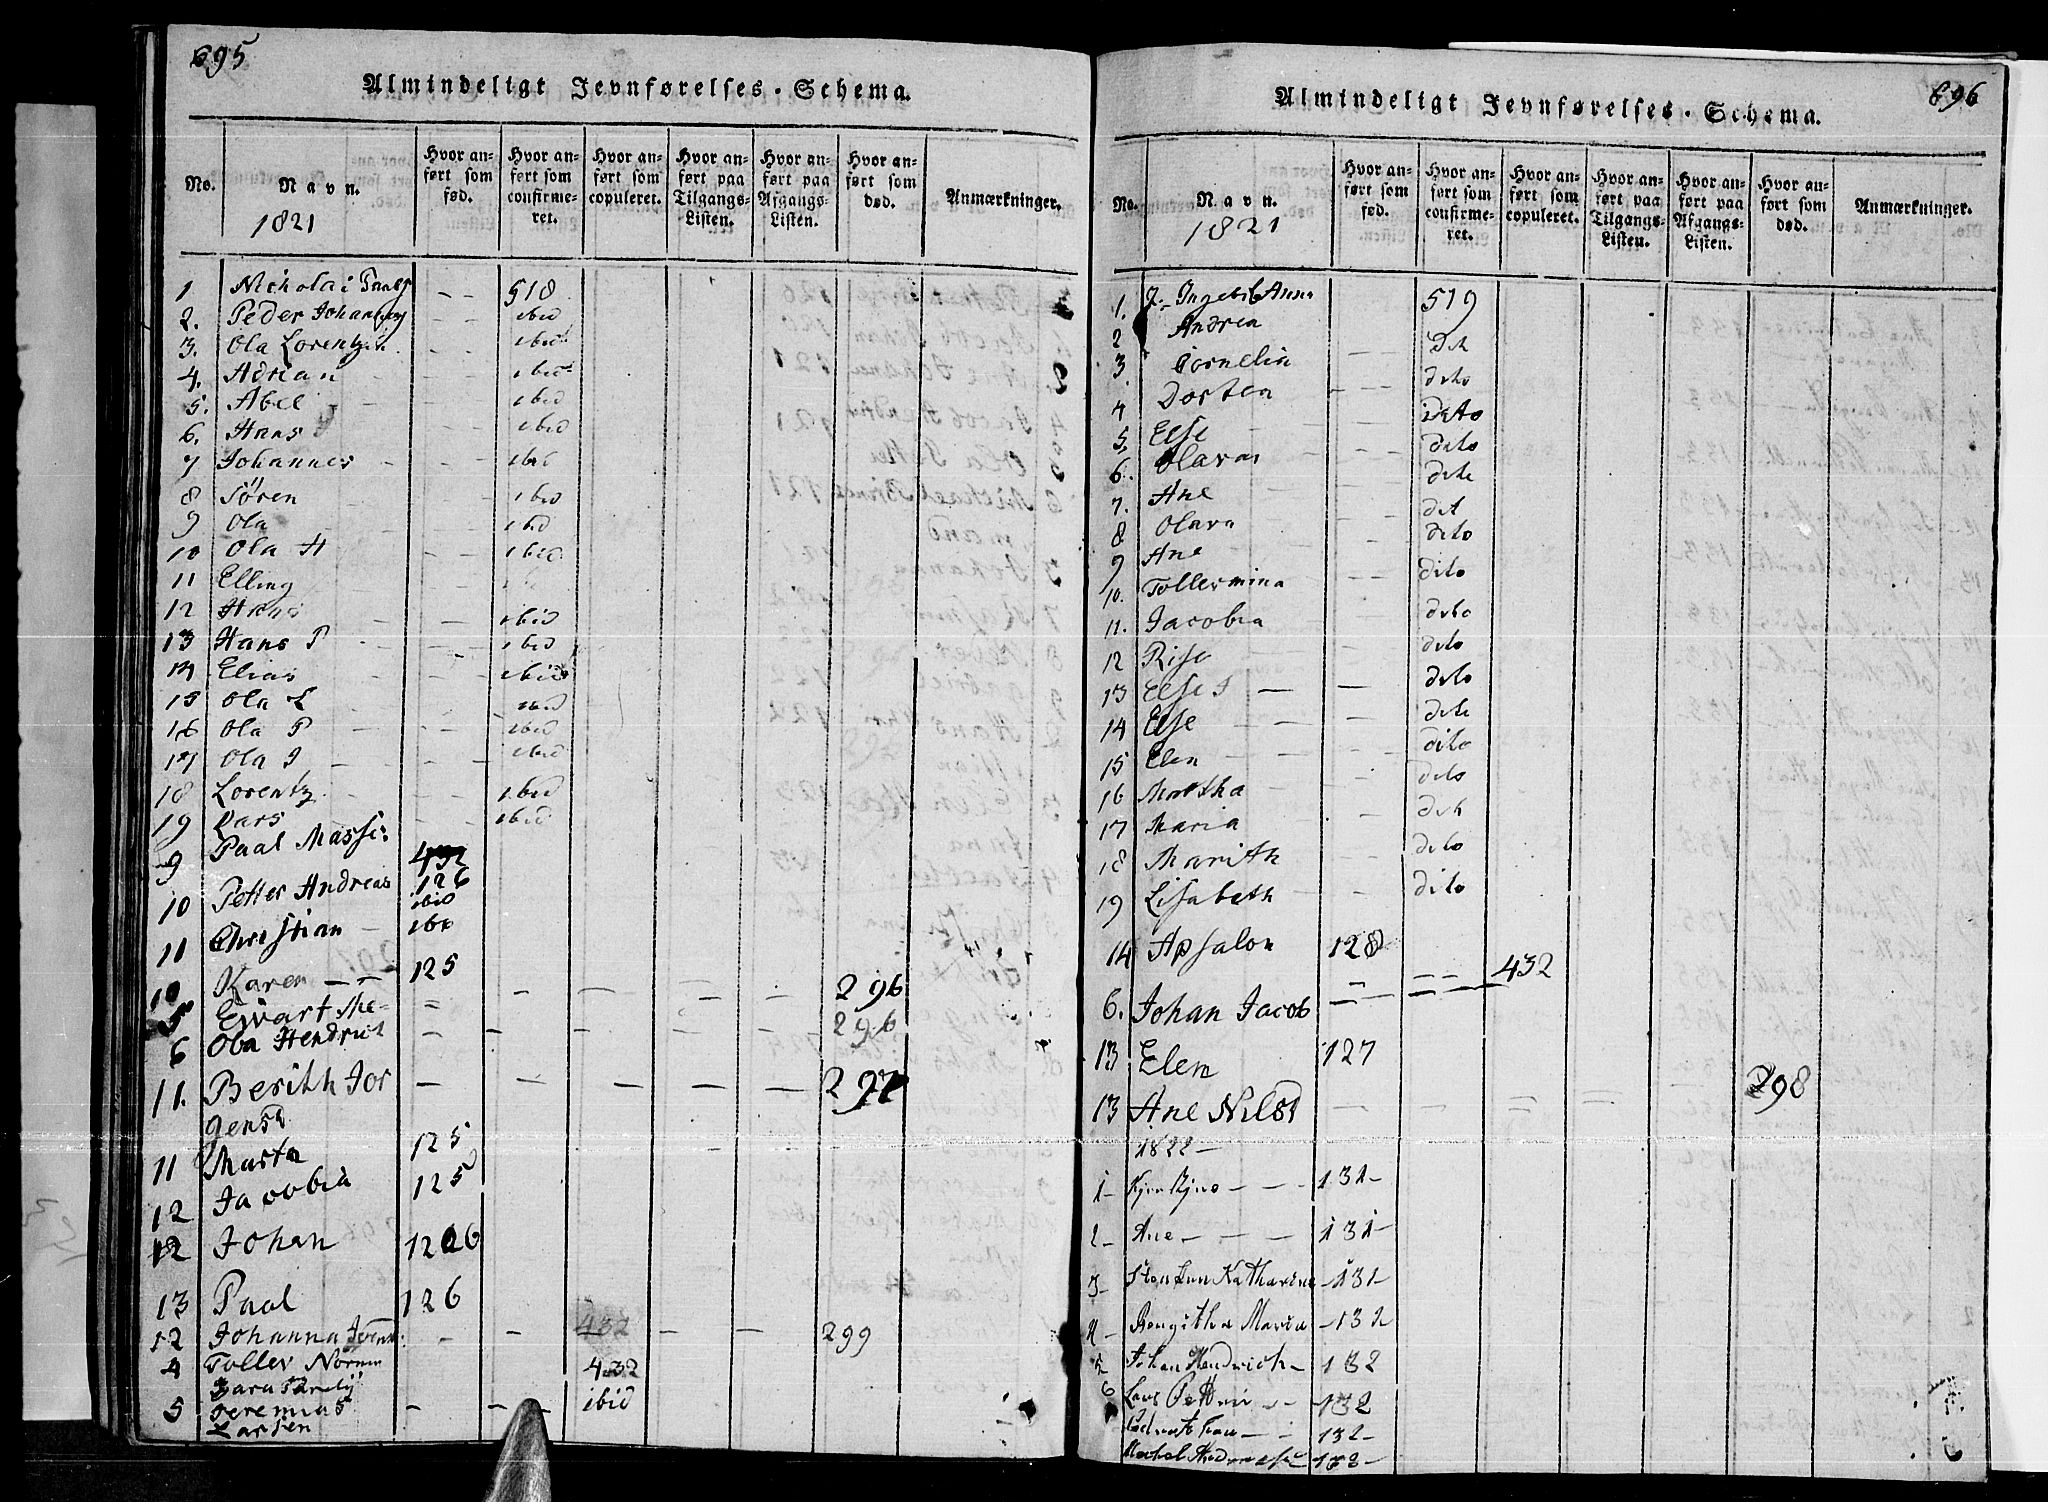 695
Almindeligt Jevnførelses-Schema.
No.
Navn.
1821
Hvor anført som fød.
Hvor anført som confirmeret.
Hvor anført som copuleret.
Hvor anført paa Tilgangs-Listen.
Hvor anført paa Afgangs-Listen.
Hvor anført som død.
Anmærkninger.
1 Nicholai — — 518
2. Peder ibid
3. Ola Lorentz — ibid
4. Adrian — — ibid
5. Abel — — ibid
6. Hans — — ibid
7 Johannes — — ibid
8 Sören — — ibid
9 Ola — — ibid
10 Ola H — — ibid
11 Elling
12 Hans — — ibid
13 Hans P — — ibid
14 Elias — — ibid
15 Ola L — — ibid
16 Ola P — — ibid
17 Ola J — — ibid
18 Lorentz — — ibid
19 Lars — — ibid
9 Paal 432
126
10 Petter Andreas ibid
11 Christian — ibi
10 Karen — — 125 296
5 Ewart Me- = — — — — 296
6 Ola Hendrich — — — — — 297
11. Berith Jor
gensd
11 Marta 125
12 Jacobia 125
12 Johan 126
13 Paal 126
12 Johanna — — 432 — — 299
4 Toller 432
5 Jeremias — — — ibid
Larsen
696
Almindeligt Jevnførelses-Schema.
No.
Navn.
1821
Hvor anført som fød.
Hvor anført som confirmeret.
Hvor anført som copuleret.
Hvor anført paa Tilgangs-Listen.
Hvor anført paa Afgangs-Listen.
Hvor anført som død.
Anmærkninger.
1. Anna 519
2 Andrea dit
3 Cornelia — — dito
4 Dorten — — dito
5. Else — — dito
6. Olava dito
7. Ane — — dit
8 Olava — — dito
9 Ane — — dito
10. Tollermina — — dito
11. Jacobia — — dito
12 Rise — — dito
13 Else J — — dito
14 Else — — dito
15 Elen — — dito
16 Martha — — dito
17 Maria — — dit
18 Marith — — dito
19 Lisabeth — — dito
14 Apsalon 128
6. Johan Jacob — — 432
13 Elen 127
13 Ane Nilsd — — = = — 298
1822 —
1 — — — 131 —
2 — Ane — — — 131 —
3 — Katharina — 131 —
4 — Maria — 132
5 Johan Hendrich — 132
6 Lars — — 132
— 132 —